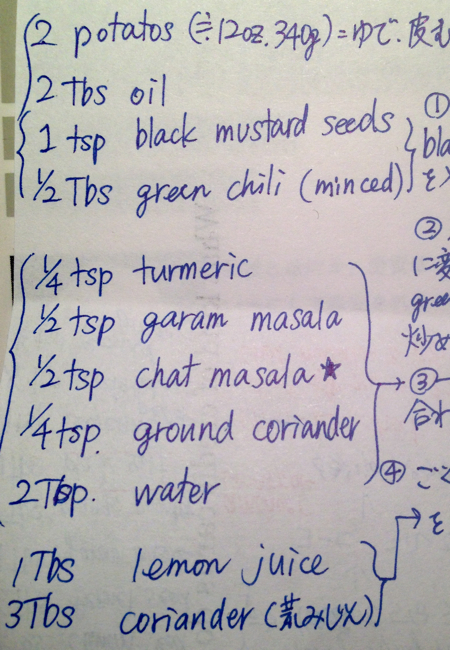 2 potatos (≒12oz. 340g) = ゆで. 皮む
2 Tbs oil
①
1 tsp black mustard seeds bla
1/2 Tbs green chili (minced) を
②
1/4 tsp turmeric に変
gree
1/2 tsp garam masala 炒め
1/2 tsp chat masala ★ ③
1/4 tsp. ground coriander 合わ
2 Tbsp. water ④ ごく
を
1 Tbs lemon juice
3 Tbs coriander (荒みじん)